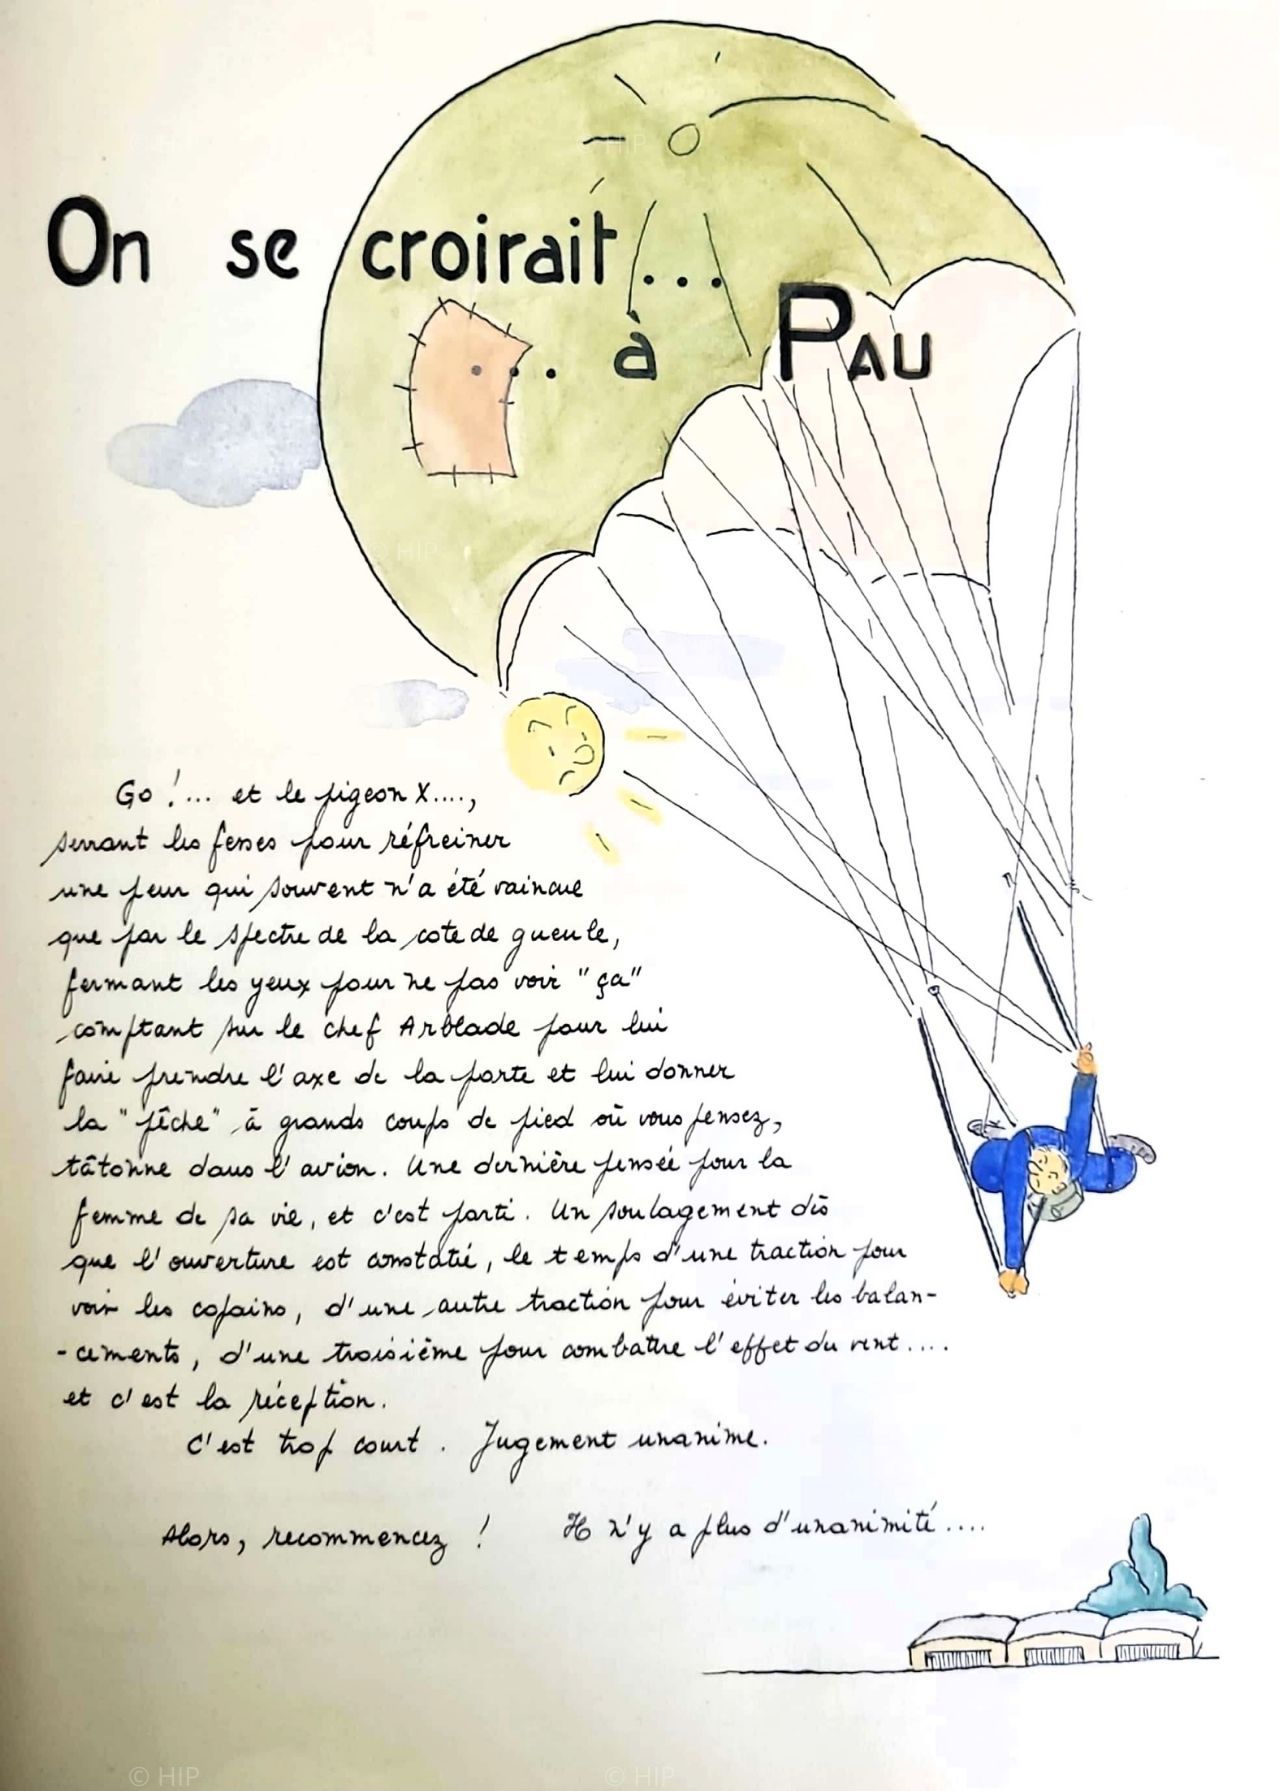 On se croirait...
... à PAU
Go !... et le pigeon X....,
serrant les fesses pour réfreiner
une peur qui souvent n'a été vaincue
que par le spectre de la cote de gueule,
fermant les yeux pour ne pas voir "ça"
comptant sur le chef Arblade pour lui
faire prendre l'axe de la porte et lui donner
la "pêche" à grands coups de pied où vous pensez,
tâtonne dans l'avion. Une dernière pensée pour la
femme de sa vie, et c'est parti. Un soulagement dès
que l'ouverture est constatée, le temps d'une traction pour
voir les copains, d'une autre traction pour éviter les balan-
-cements, d'une troisième pour combattre l'effet du vent....
et c'est la réception.
C'est trop court. Jugement unanime.
Alors, recommencez ! Il n'y a plus d'unanimité....
© HIP
© HIP
© HIP © HIP